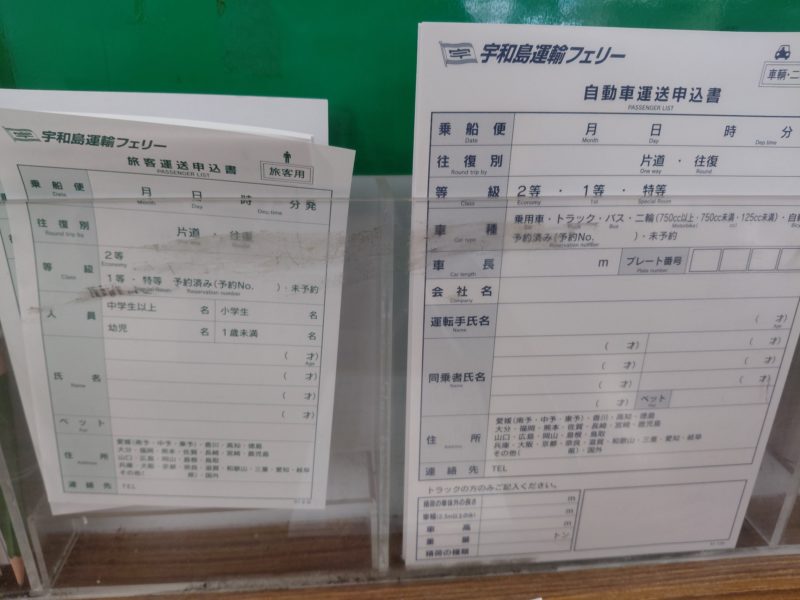 宇和島運輸フェリー
旅客運送申込書
PASSENGER LIST
旅客用
乗船便 月 日 時 分発
Date Month Day Dep.time
往復別 片道・往復
Round trip by
等級 2等
Economy
Class 1等・特等 予約済み(予約No. )・未予約
Reservation number
人員 中学生以上 名 小学生 名
幼児 名 1歳未満 名
(才)
Age
氏名 (才)
Name
(才)
(才)
ペット
住所 愛媛(南予・中予・東予)・香川・高知・徳島
Address 大分・福岡・熊本・佐賀・長崎・宮崎・鹿児島
山口・広島・岡山・島根・鳥取
兵庫・大阪・京都・奈良・滋賀・和歌山・三重・愛知・岐阜
その他( 県)・国外
連絡先 TEL
宇和島運輸フェリー
自動車運送申込書
PASSENGER LIST
車輌・二
乗船便 月 日 時 分
Date Month Day Dep.time
往復別 片道・往復
Round trip by One way Round
等級 2等・1等・特等
Class Economy 1st Special Room
車種 乗用車・トラック・バス・二輪(750cc以上・750cc未満・125cc未満)・自
Car type 予約済み(予約No. )・未予約
Reservation number
車長 m プレート番号
Car length Plate number
会社名
Company
運転手氏名 (才)
Name Age
(才) (才)
(才) (才)
同乗者氏名 (才) (才)
Name
(才) ペット
住所 愛媛(南予・中予・東予)・香川・高知・徳島
Address 大分・福岡・熊本・佐賀・長崎・宮崎・鹿児島
山口・広島・岡山・島根・鳥取
兵庫・大阪・京都・奈良・滋賀・和歌山・三重・愛知・岐阜
その他( 県)・国外
連絡先 TEL
トラックの方のみご記入ください。
積荷の車体外の長さ m
車幅(2.5m以上のみ) m
車高 m
重量 トン
積荷の種類